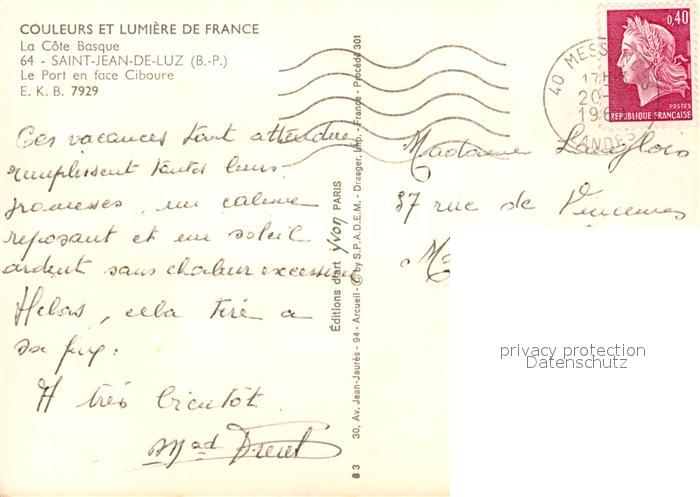 COULEURS ET LUMIÈRE DE FRANCE
La Côte Basque
64 - SAINT-JEAN-DE-LUZ (B.-P.)
Le Port en face Ciboure
E. K. B. 7929
Ces vacances tant attendues
remplissent toutes leurs
promesses, un calme
reposant et un soleil
ardent sans chaleur excessive
Helas, cela tire a
sa fin.
A très bientôt.
Mad
Éditions d'art yvon PARIS
30, Av. Jean-Jaurès - 94 - Arcueil - © by S.P.A.D.E.M. - Draeger, Imp. - France - Procédé 301
63
40 MESS
17H
20-
196
LANDES
0,40
POSTES
RÉPUBLIQUE FRANÇAISE
Madame Langlois
37 rue de Vincennes
privacy protection
Datenschutz